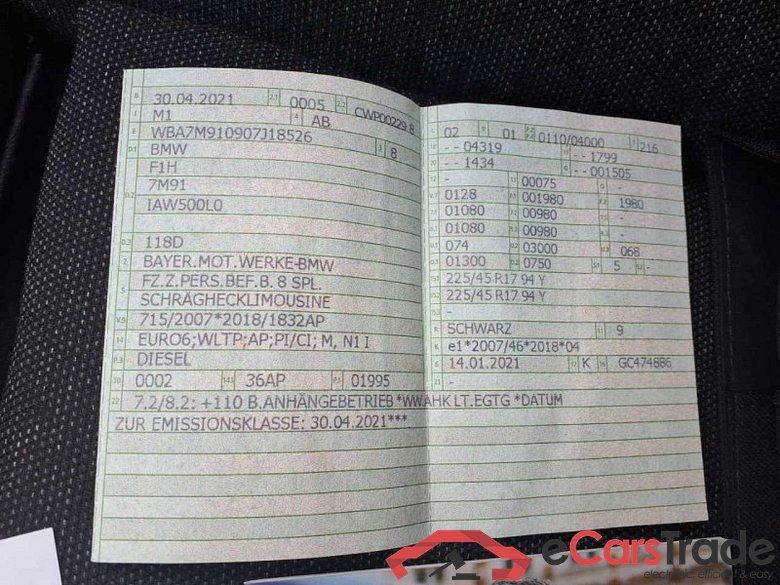 B 30.04.2021 2.1 0005 2.2 CWP00229 8
J M1 4 AB
E WBA7M910907J18526
D.1 BMW 3 8
F1H
7M91
D.2 IAW500L0
D.3 118D
2 BAYER.MOT.WERKE-BMW
5 FZ.Z.PERS.BEF.B. 8 SPL.
SCHRÄGHECKLIMOUSINE
V.9 715/2007*2018/1832AP
14 EURO6;WLTP;AP;PI/CI; M, N1 I
P.3 DIESEL
10 0002 14.1 36AP P.1 01995
22 7.2/8.2: +110 B.ANHÄNGEBETRIEB *WW.AHK LT.EGTG *DATUM
ZUR EMISSIONSKLASSE: 30.04.2021***
L 02 9 01 P.2 P.4 0110/04000 T 216
18 - - 04319 19 - - 1799
20 - - 1434 G - - 001505
12 - 13 00075 Q -
V.7 0128 F.1 001980 F.2 1980
7.1 01080 7.2 00980 7.3 -
8.1 01080 8.2 00980 8.3 -
U.1 074 U.2 03000 U.3 068
O.1 01300 O.2 0750 S.1 5 S.2 -
15.1 225/45 R17 94 Y
15.2 225/45 R17 94 Y
15.3 -
R SCHWARZ 11 9
K e1*2007/46*2018*04
6 14.01.2021 17 K 16 GC474886
21 -
eCarsTrade
electronic, efficient & easy